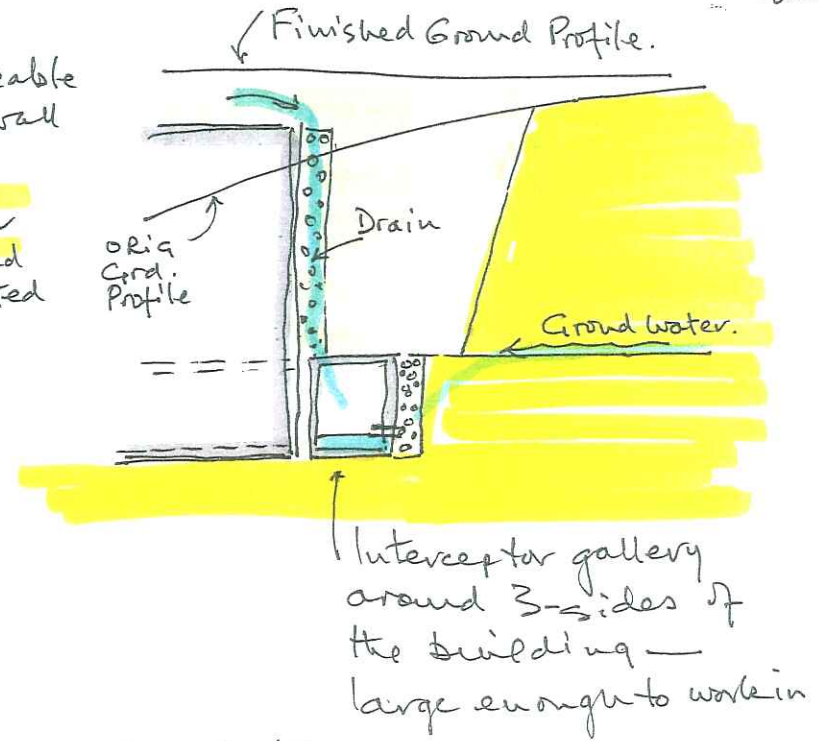 Finished Ground Profile.
wall
ORIG
Grd.
Profile
Drain
Ground water.
Interceptor gallery
around 3-sides of
the building —
large enough to work in